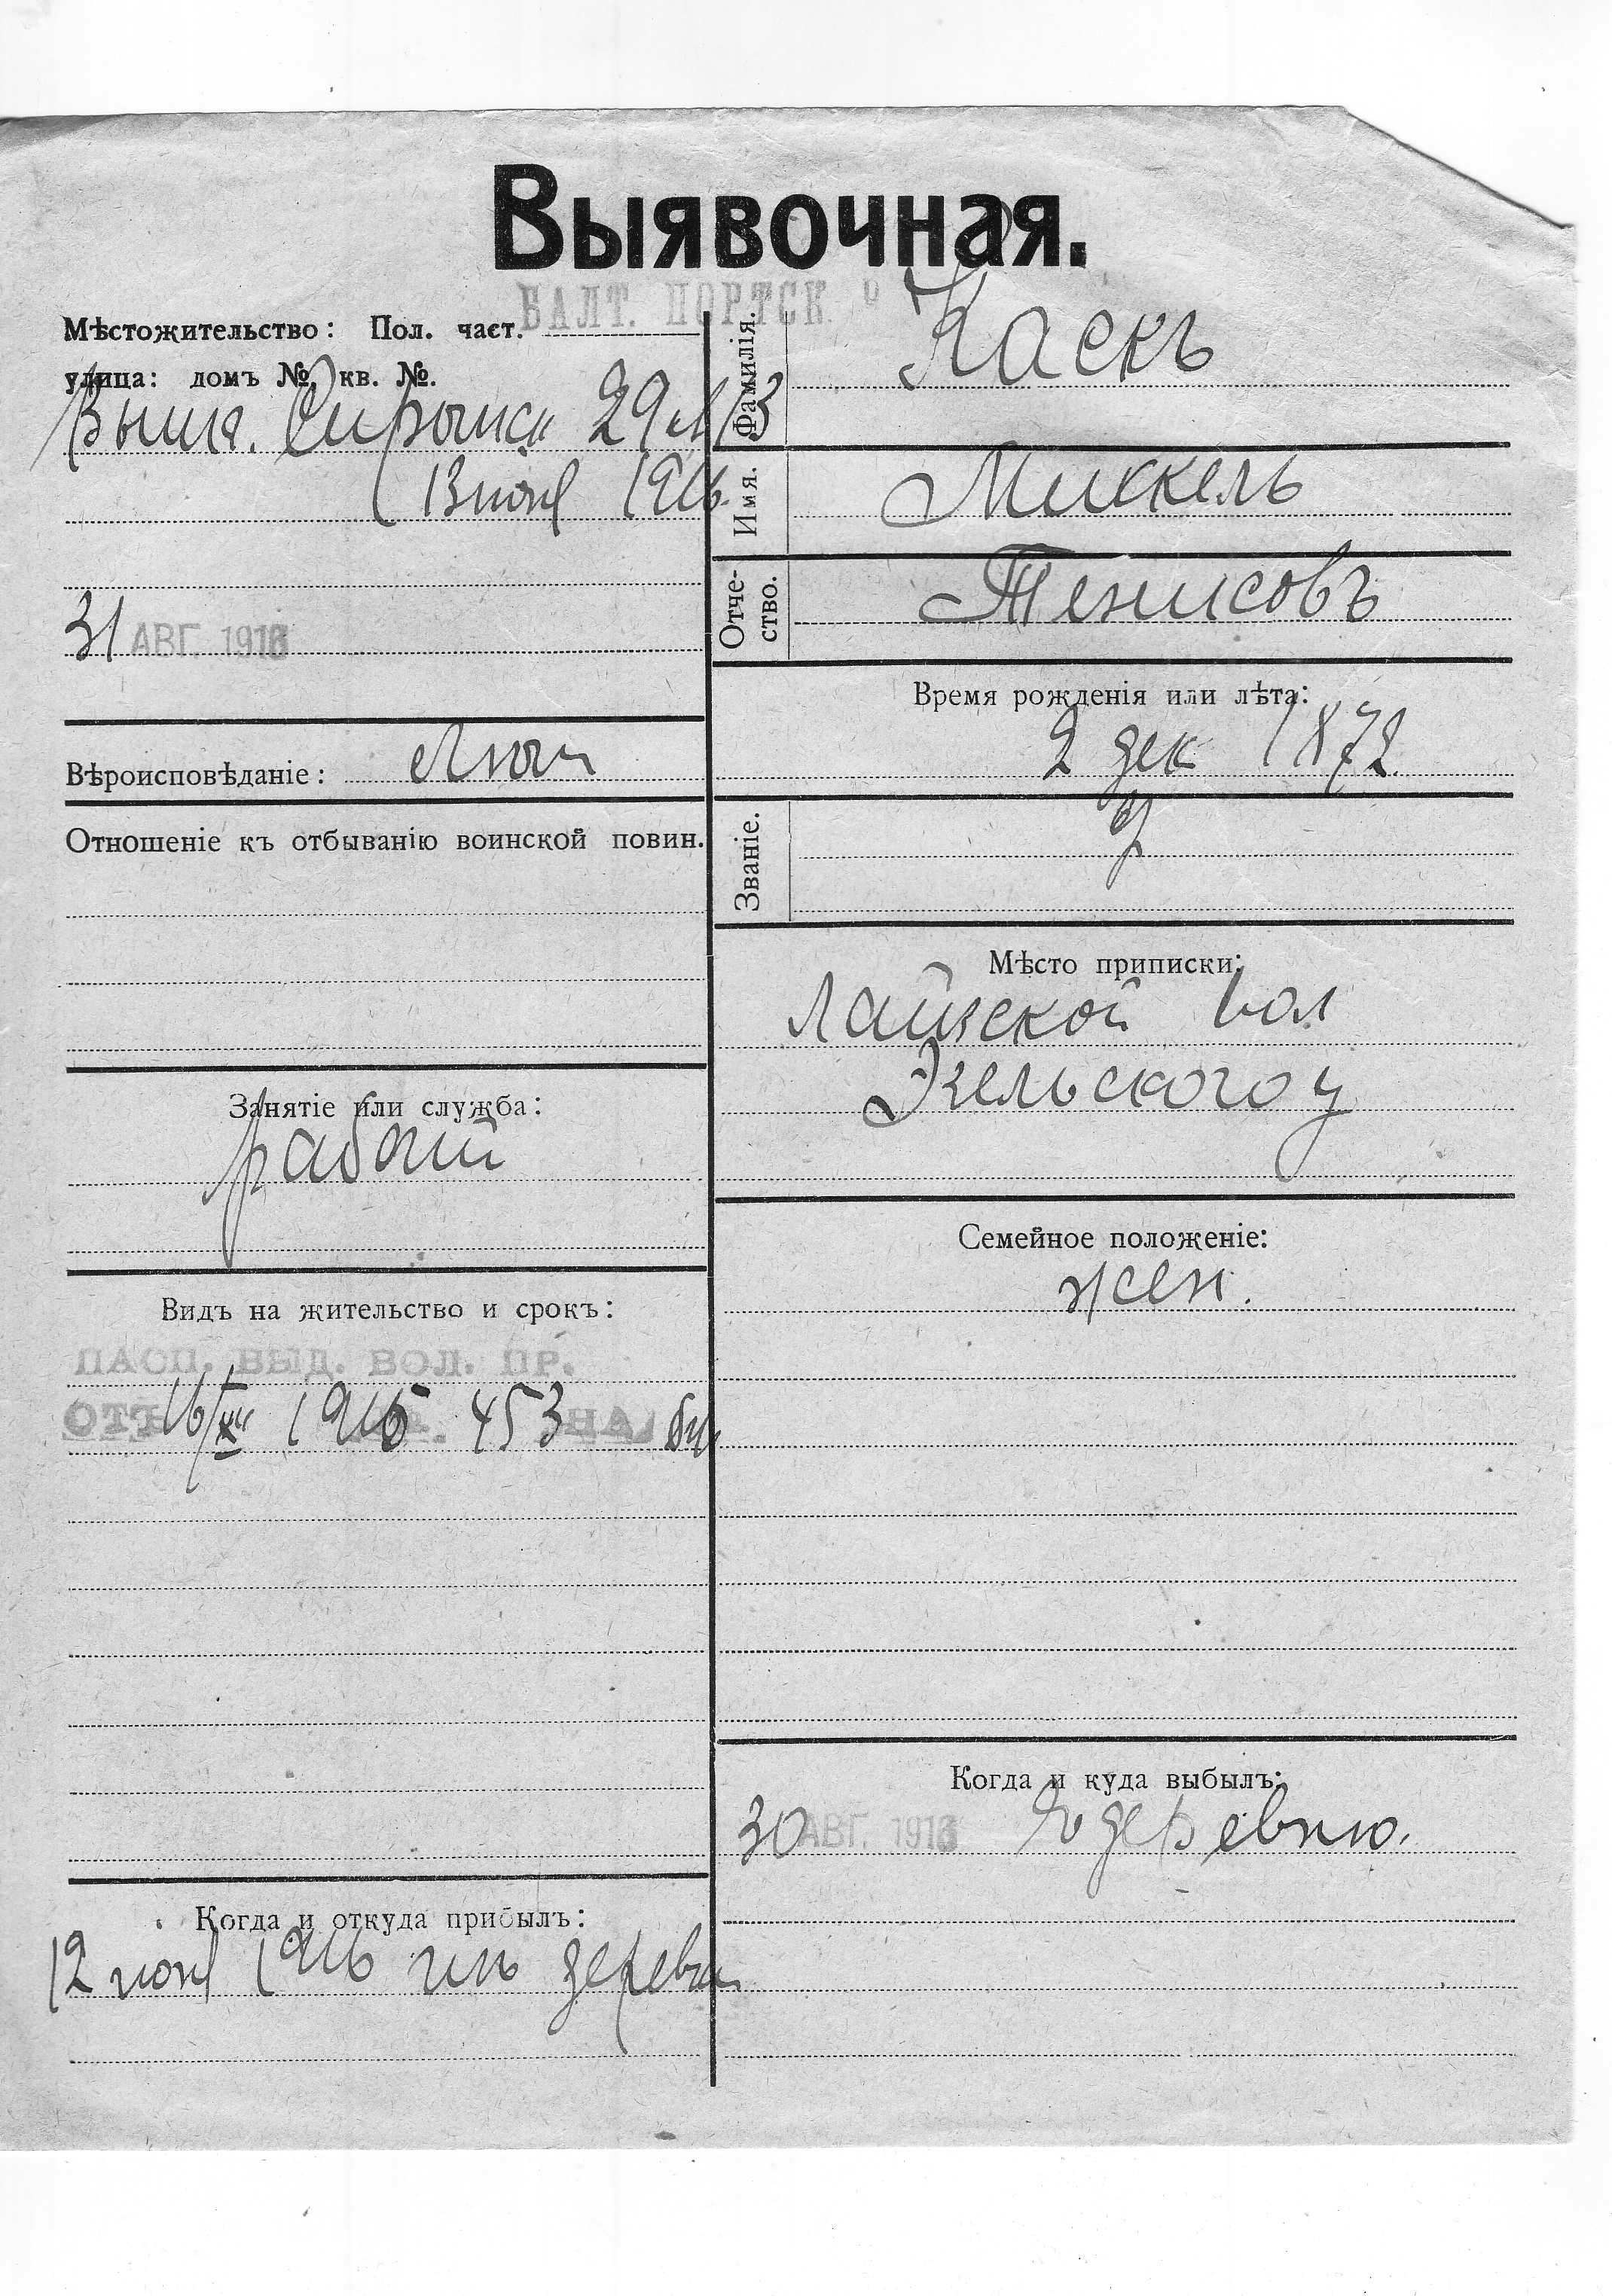 Выявочная.
БАЛТ. ПОРТСК.
Мѣстожительство: Пол. част.
улица: домъ №, кв. №.
29 13
13 июня 1916.
31 АВГ. 1916
Вѣроисповѣданіе: Лют
Отношеніе къ отбыванію воинской повин.
Занятіе или служба:
работ
Видъ на жительство и срокъ:
ПАСП. ВЫД. ВОЛ. ПР.
ОТЪ 16 1916 453 НА
Когда и откуда прибылъ:
12 июня 1916 изъ деревни
Фамилія. Каскъ
Имя. Миккель
Отчество. Тенисовъ
Время рожденія или лѣта:
2 дек 1872.
Званіе.
Мѣсто приписки:
Лайзской вол
Эзельского у
Семейное положеніе:
жен.
Когда и куда выбылъ:
30 АВГ. 1916 в деревню.